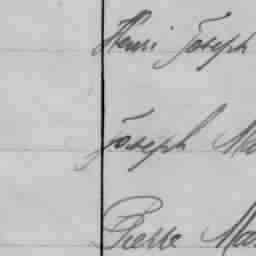 Henri Joseph
Joseph Ma
Pierre Mar